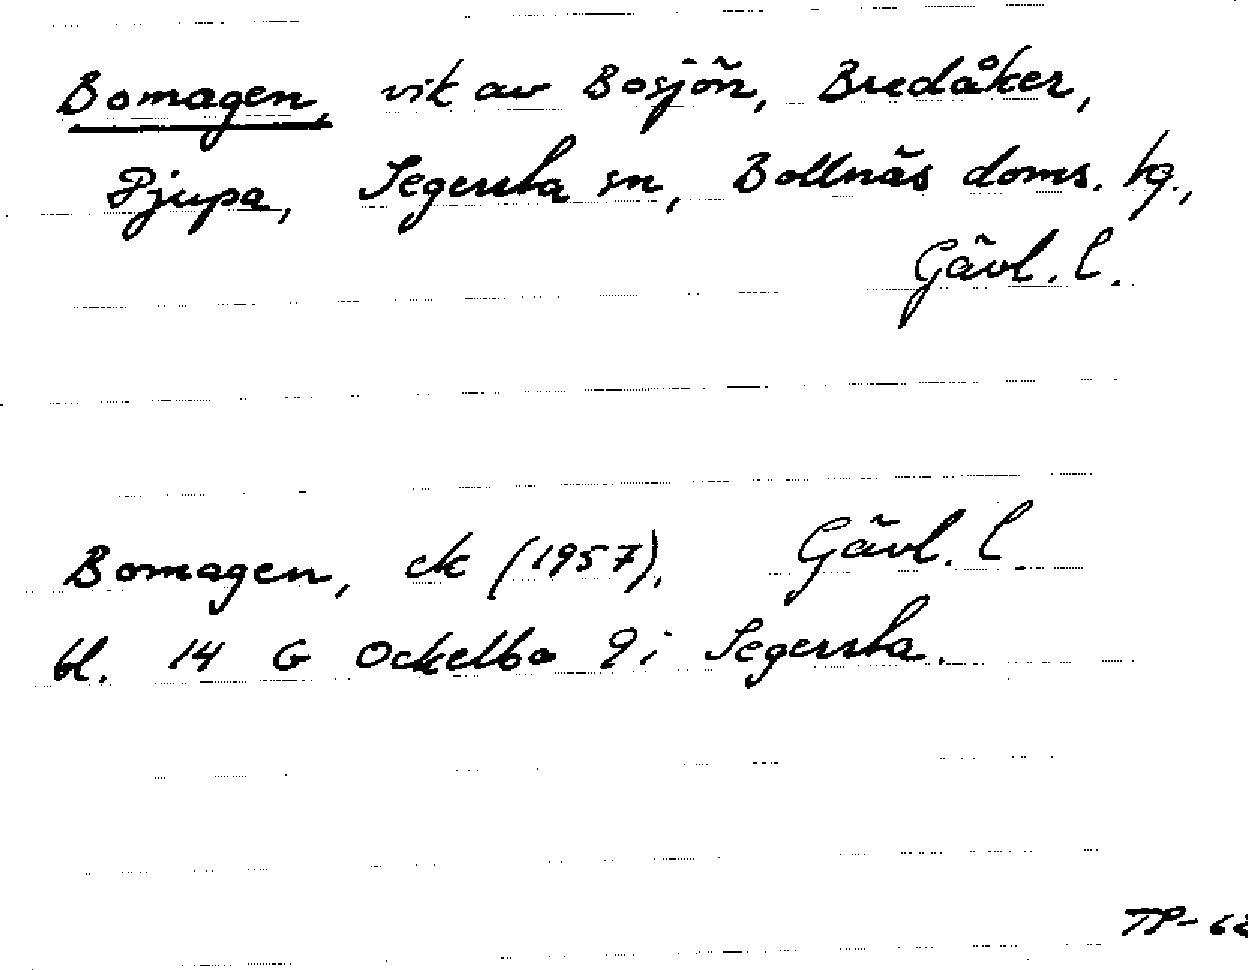 Bomagen, vik av Bosjön, Bredåker,
Pjupa, Segersta sn, Bollnäs doms. tg.,
Gävl. l.
Bomagen, ek (1957), Gävl. l.
bl. 14 G Ockelbo 9 i Segersta.
TP-62